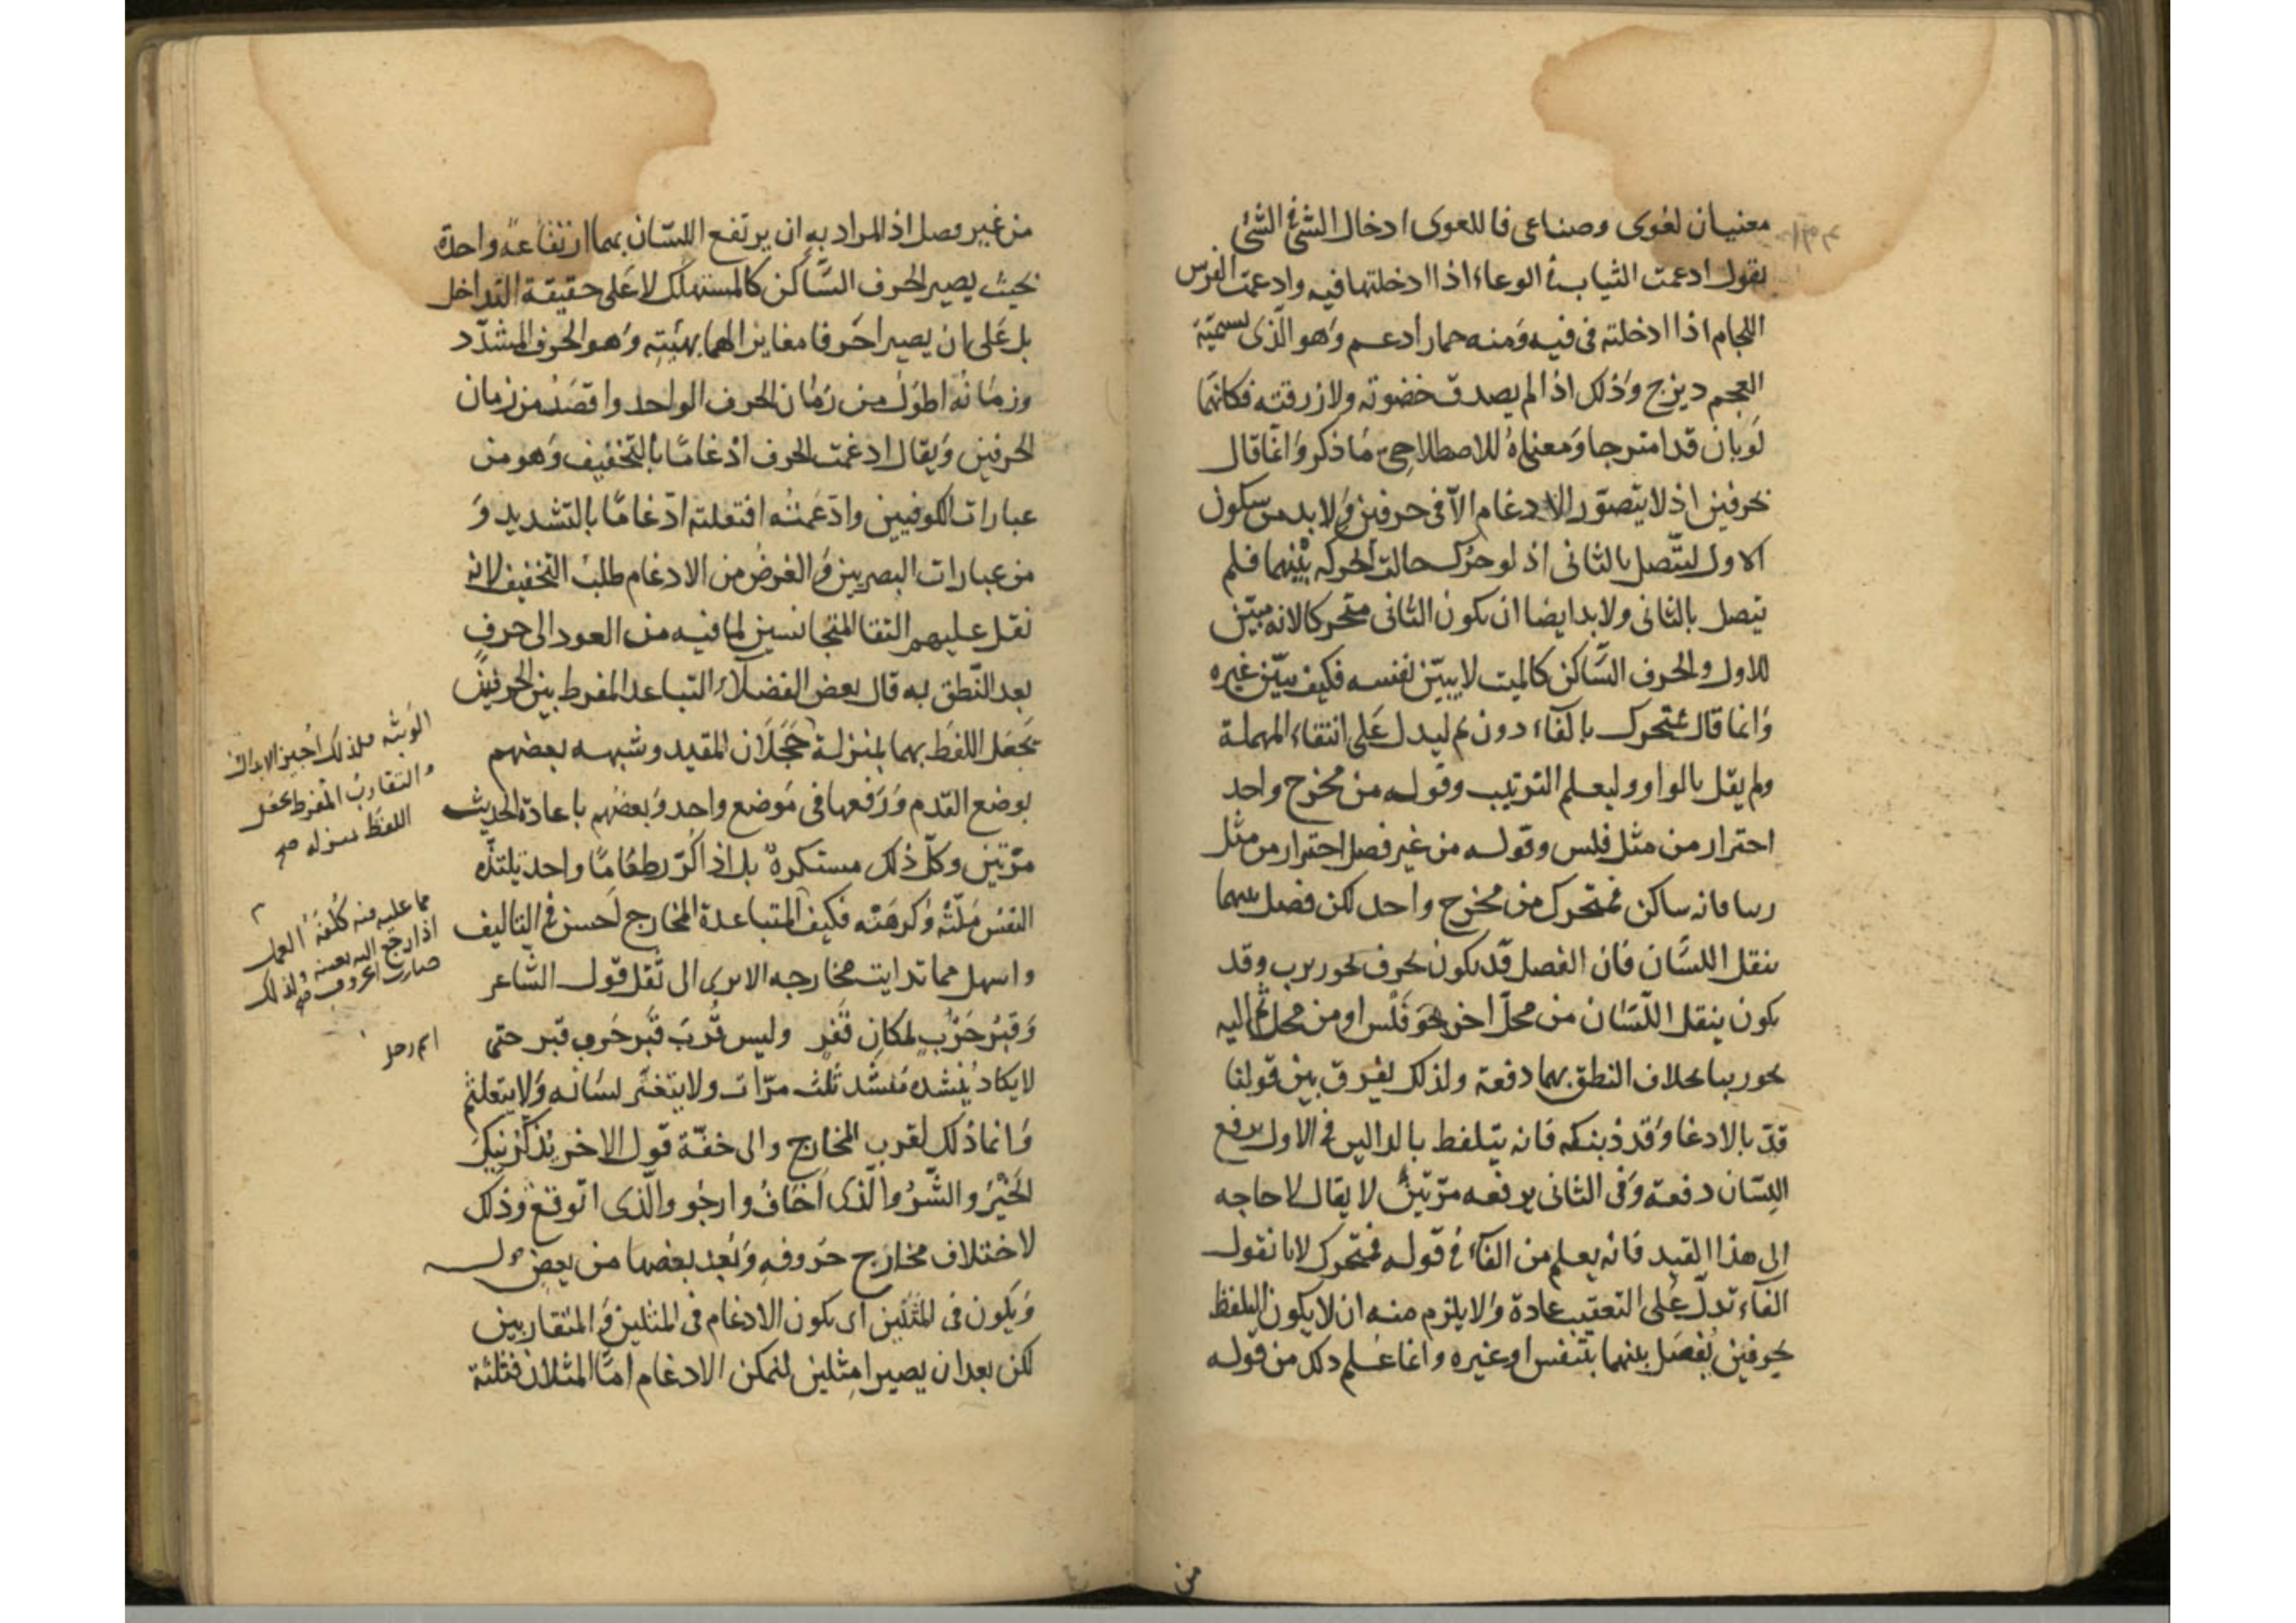 معنيان لغوى وصناعى فاللغوى ادخال الشئ فى الشئ
يقول ادغمت الثياب فى الوعاء اذا ادخلتها فيه وادغمت الفرس
اللجام اذا ادخلته فى فيه ومنه حمار ادغم وهو الذى يسميه
العجم ديزج وذلك اذا لم يصدق خضرته ولا زرقته فكانهما
لونان قد امتزجا ومعناه الاصطلاحى ما ذكر وانما قال
بحرفين اذ لا يتصور الادغام الا فى حرفين ولا بد من سكون
الاول ليتصل بالثانى اذ لو حرك حالت الحركة بينهما فلم
يتصل بالثانى ولا بد ايضا ان يكون الثانى متحركا لانه مبين
للاول والحرف الساكن كالميت لا يبين نفسه فكيف يبين غيره
وانما قال فمتحرك بالفاء دون ثم ليدل على انتفاء المهملة
ولم يقل بالواو وليعلم الترتيب وقوله من مخرج واحد
احتراز من مثل فلس وقوله من غير فصل احتراز من مثل
ريبا فانه ساكن فمتحرك من مخرج واحد لكن فصل بينهما
بنقل اللسان فان الفصل قد يكون بحرف نحو ربرب وقد
يكون بنقل اللسان من محل اخر نحو فلس او من محل ثم اليه
نحو ريبا بخلاف النطق بهما دفعة ولذلك يفرق بين قولنا
قد بالادغام وقدد بفكه فانه يتلفظ بالدالين فى الاول برفع
اللسان دفعة وفى الثانى يرفعه مرتين لا يقال لا حاجه
الى هذا القيد فانه يعلم من الفاء فى قوله فمتحرك لانا نقول
الفاء تدل على التعقيب عادة ولا يلزم منه ان لا يكون التلفظ
بحرفين يفصل بينهما بتنفس او غيره وانما علم ذلك من قوله
من
من غير فصل اذ المراد به ان يرتفع اللسان بهما ارتفاعة واحدة
بحيث يصير الحرف الساكن كالمستهلك لا على حقيقة التداخل
بل على ان يصيرا حرفا مغايرا لهما بهيئته وهو الحرف المشدد
وزمانه اطول من زمان الحرف الواحد واقصر من زمان
الحرفين ويقال ادغمت الحرف ادغاما بالتخفيف وهو من
عبارات الكوفيين وادغمته افتعلته ادغاما بالتشديد و
من عبارات البصريين والغرض من الادغام طلب التخفيف لانه
ثقل عليهم التقا المتجانسين لما فيه من العود الى حرف
بعد النطق به قال بعض الفضلاء التباعد المفرط بين الحرفين
يجعل اللفظ بهما بمنزلة حجلان المقيد وشبهه بعضهم
بوضع القدم ورفعها فى موضع واحد وبعضهم باعادة الحديث
مرتين وكل ذلك مستكره بل اذا كرر طعاما واحد يلتذه
النفس ملته وكرهته فكيف المتباعدة المخارج احسن فى التاليف
واسهل مما تدانيت مخارجه الا يرى الى ثقل قول الشاعر
وقبر حرب بمكان قفر وليس قرب قبر حرب قبر حتى
لا يكاد ينشده منشد ثلث مرات ولا يتغير لسانه ولا يتعلثم
وانما ذلك لقرب المخارج والى خفة قول الاخر يذكرنيك
الخير والشر والذى اخاف وارجو والذى اتوقع وذلك
لاختلاف مخارج حروفه وبعد بعضها من بعض
ويكون فى المثلين اى يكون الادغام فى المثلين والمتقاربين
لكن بعد ان يصيرا مثلين ليمكن الادغام اما المثلان فثلثة
الوثبه فلذلك اجيز الابدال
والتقارب المفرط يجعل
اللفظ بمنزله صح
مما عليه فيه كلفة العمل
اذا رجع اليه بعينه ولذلك
اسم رجل